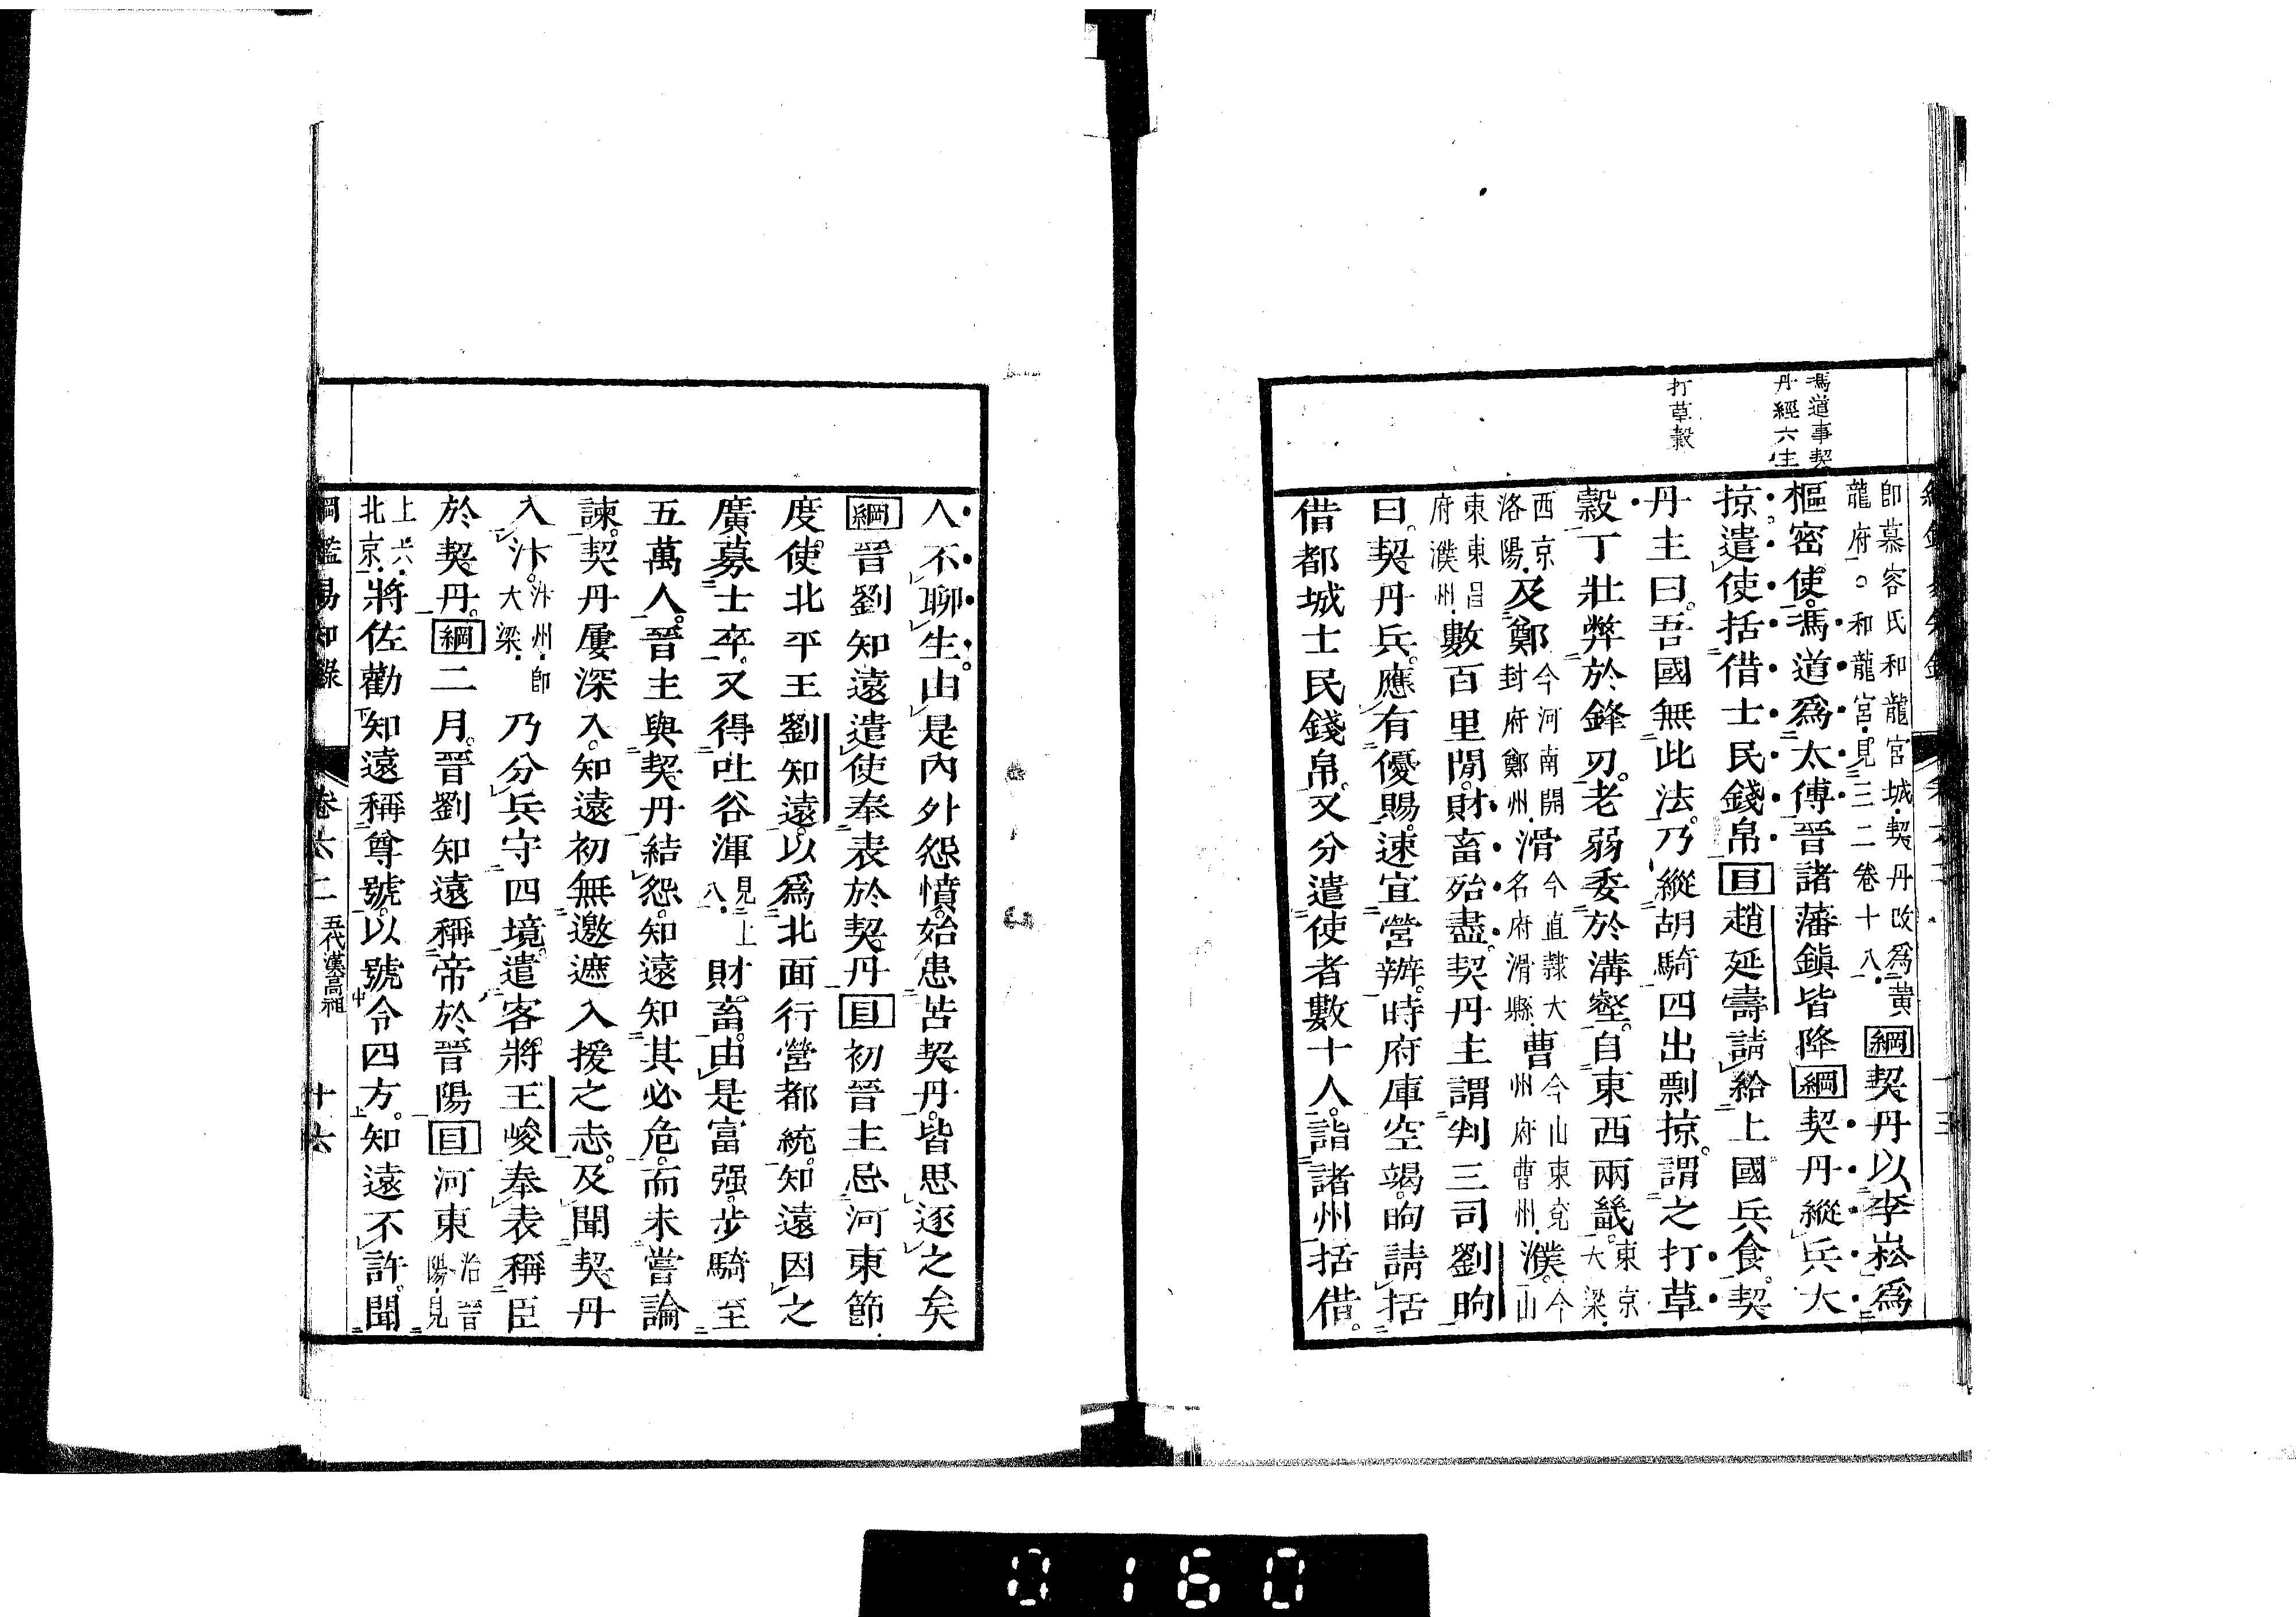 馮道事契
丹經六主
打草穀
即慕容氏和龍宮城契丹改爲黃
龍府○和龍宮見三二卷十八
綱契丹以李崧爲
樞密使馮道爲太傅晉諸藩鎮皆降綱契丹縱兵大
掠遣使括借士民錢帛目趙延壽請給上國兵食契
丹主曰吾國無此法乃縱胡騎四出剽掠謂之打草
穀丁壯弊於鋒刃老弱委於溝壑自東西兩畿東京大梁
西京洛陽及鄭今河南開封府鄭州滑今直隸大名府滑縣曹今山東兗州府曹州濮今山
東東昌府濮州數百里閒財畜殆盡契丹主謂判三司劉昫
曰契丹兵應有優賜速宜營辦時府庫空竭昫請括
借都城士民錢帛又分遣使者數十人詣諸州括借
人不聊生由是內外怨憤始患苦契丹皆思逐之矣
綱晉劉知遠遣使奉表於契丹目初晉主忌河東節
度使北平王劉知遠以爲北面行營都統知遠因之
廣募士卒又得吐谷渾見上八財畜由是富强步騎至
五萬人晉主與契丹結怨知遠知其必危而未嘗論
諫契丹屢深入知遠初無邀遮入援之志及聞契丹
入汴汴州即大梁乃分兵守四境遣客將王峻奉表稱臣
於契丹綱二月晉劉知遠稱帝於晉陽目河東治晉陽見
上六北京將佐勸知遠稱尊號以號令四方知遠不許聞
綱鑑易知錄 卷六二 五代漢高祖 十六
0160